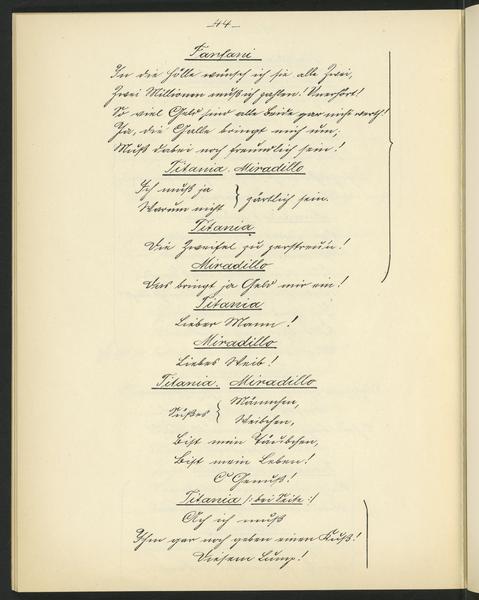 —44—
Fanfani
In die Hölle wünsch ich sie alle Zwei,
Zwei Millionen muß ich zahlen! Unerhört!
So viel Geld sind alle beide gar nicht werth!
Ja, die Galle bringt mich um,
Muß dabei noch freundlich sein!
Titania. Miradillo
Ich muß ja
Warum nicht } zärtlich sein.
Titania.
Die Zweifel zu zerstreu'n!
Miradillo
Das bringt ja Geld mir ein!
Titania
Lieber Mann!
Miradillo
Liebes Weib!
Titania. Miradillo
Süßes { Männchen,
Weibchen,
Bist mein Täubchen,
Bist mein Leben!
O Genuß!
Titania /: bei Seite :/
Ach ich muß
Ihm gar noch geben einen Kuß!
Diesem Lump!